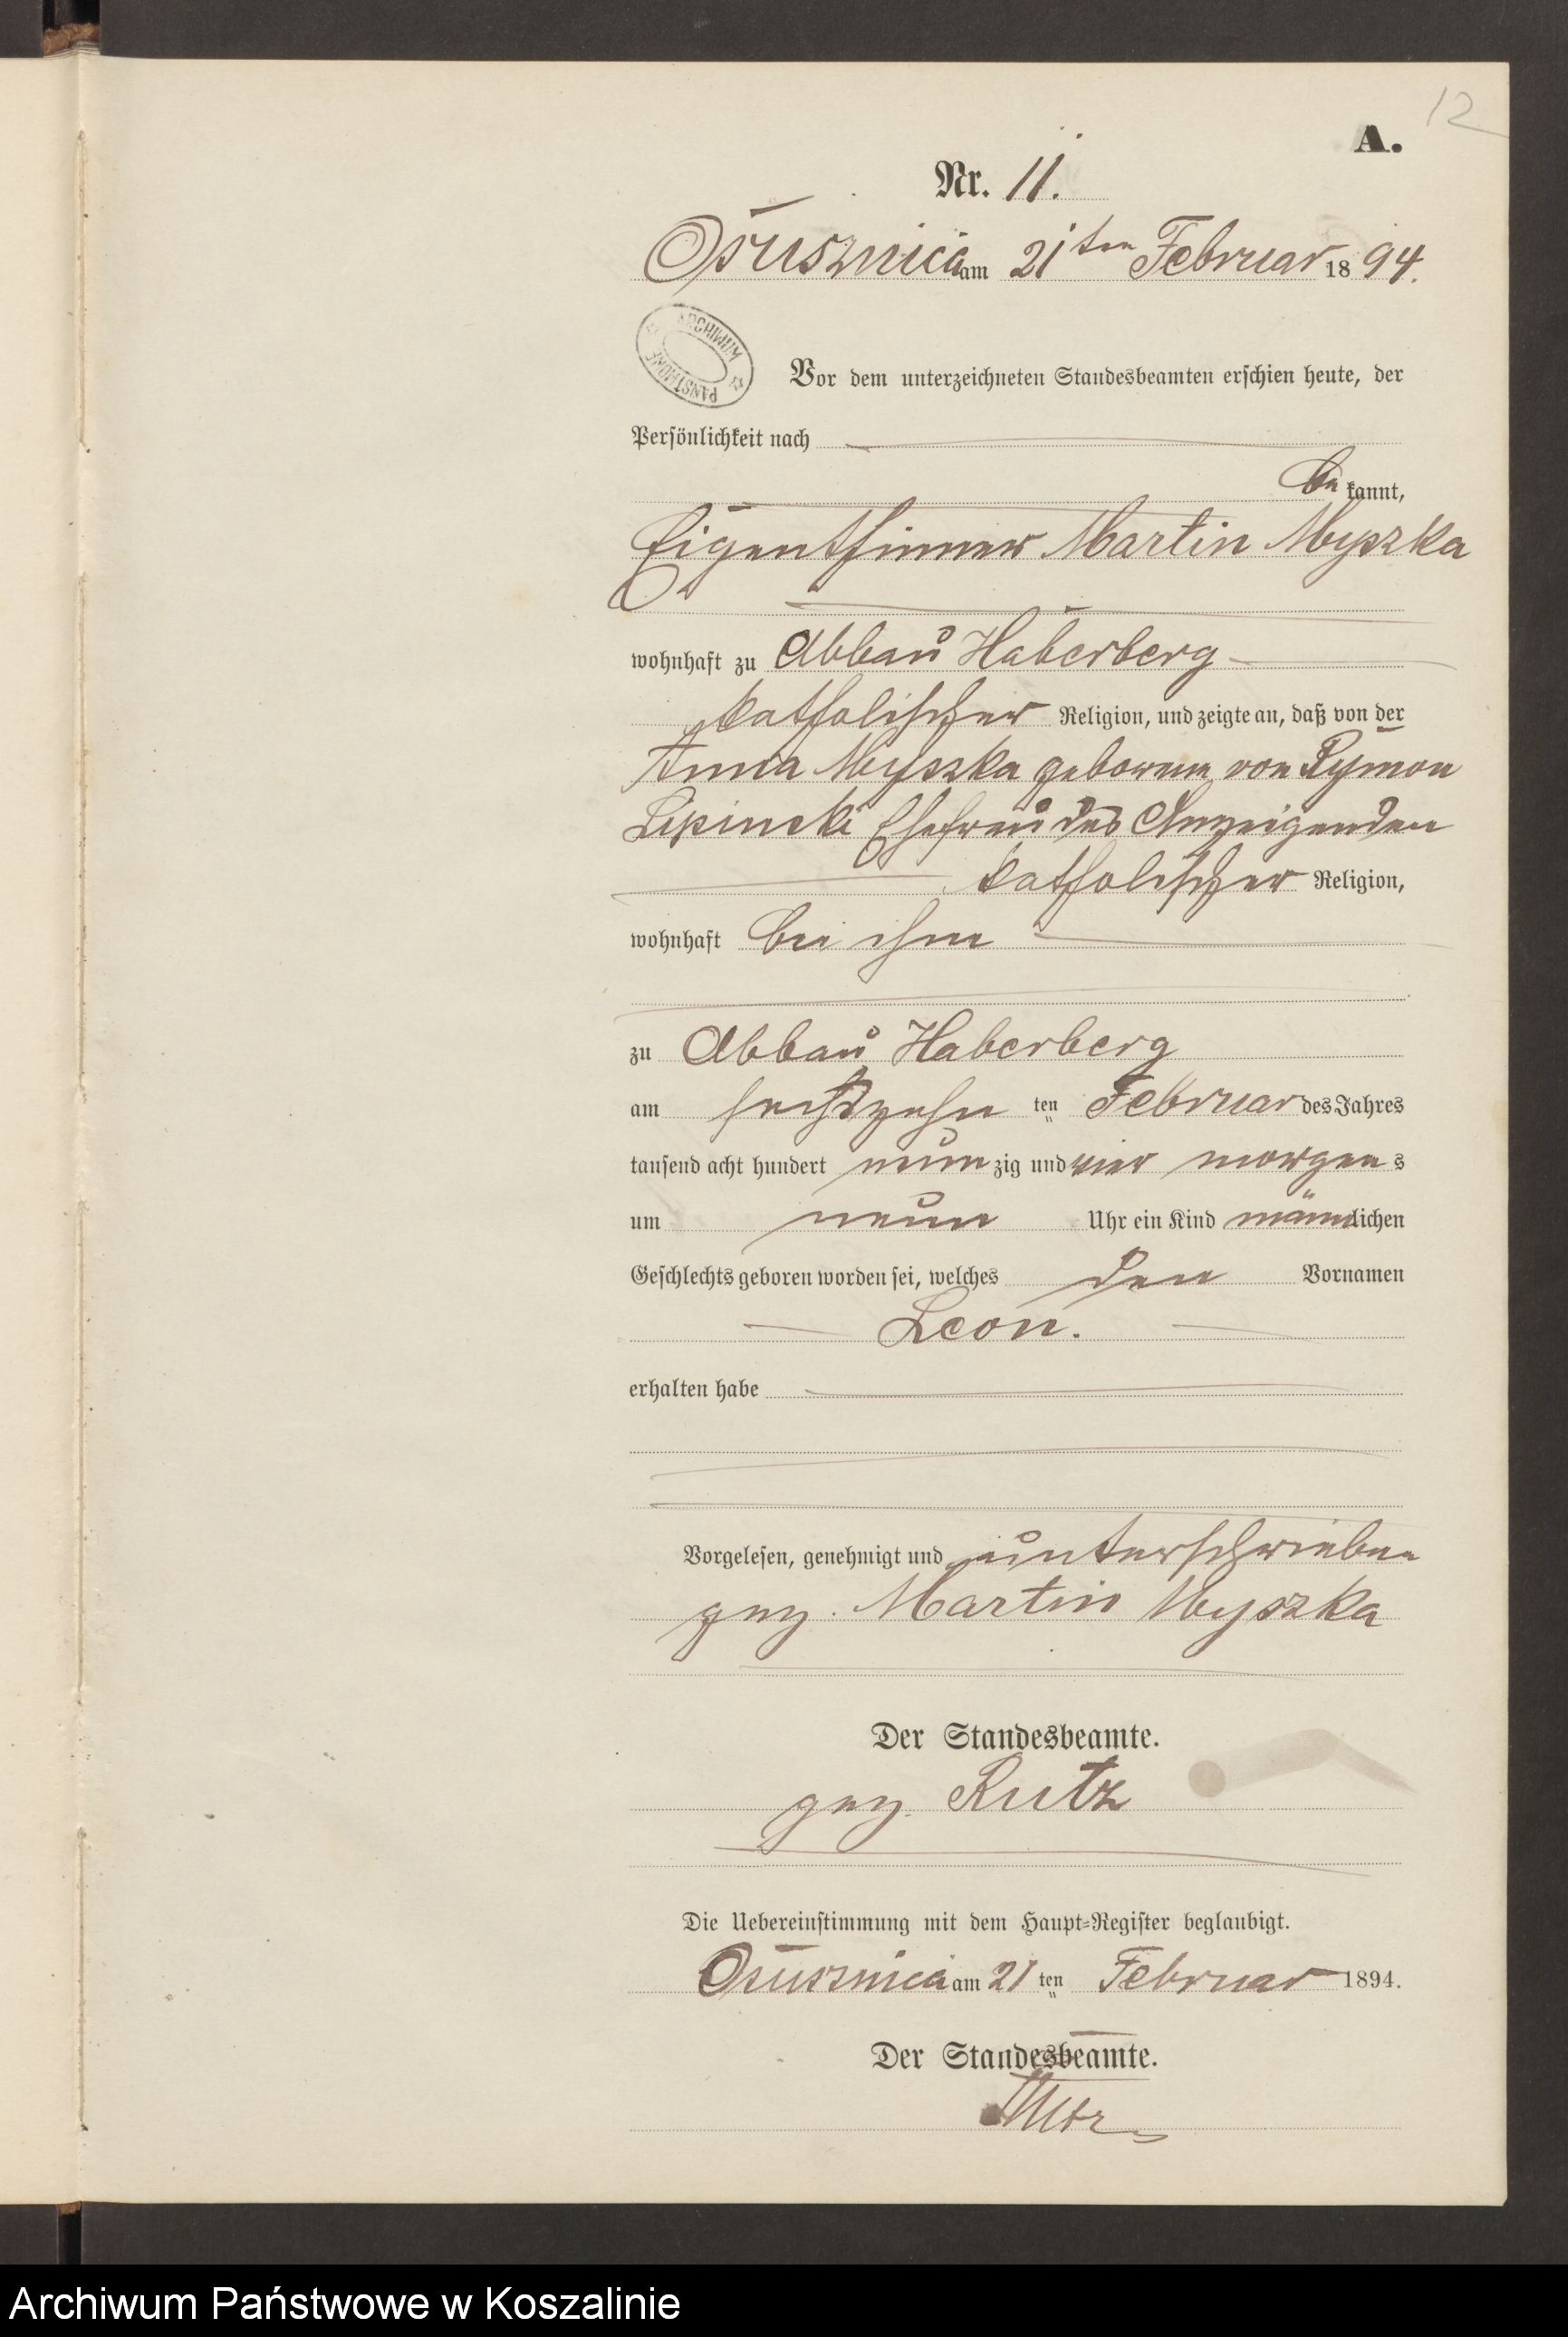 12
A.
Nr. 11.
Ośusznica am 21ten Februar 1894.
ARCHIWUM PAŃSTWOWE
Vor dem unterzeichneten Standesbeamten erschien heute, der
Persönlichkeit nach
be kannt,
Eigenthümer Martin Myszka
wohnhaft zu Abbau Haberberg
katholischer Religion, und zeigte an, daß von der
Anna Myszka geborene von Pymon
Lipinski Ehefrau des Anzeigenden
katholischer Religion,
wohnhaft bei ihm
zu Abbau Haberberg
am sechszehn ten Februar des Jahres
tausend acht hundert neun zig und vier morgens
um neun Uhr ein Kind männlichen
Geschlechts geboren worden sei, welches den Vornamen
Leon.
erhalten habe
Vorgelesen, genehmigt und unterschrieben
gez. Martin Myszka
Der Standesbeamte.
gez. Kutz
Die Uebereinstimmung mit dem Haupt=Register beglaubigt.
Osusznica am 21 ten Februar 1894.
Der Standesbeamte.
Archiwum Państwowe w Koszalinie